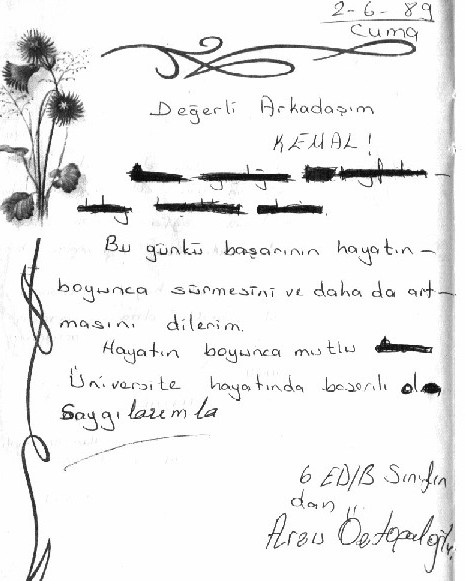 2-6-89
Cuma
Değerli Arkadaşım
KEMAL!
Bu günkü başarının hayatın-
boyunca sürmesini ve daha da art-
masını dilerim.
Hayatın boyunca mutlu
Üniversite hayatında başarılı
Saygılarımla
6 ED/B Sınıfın
dan
Arzu